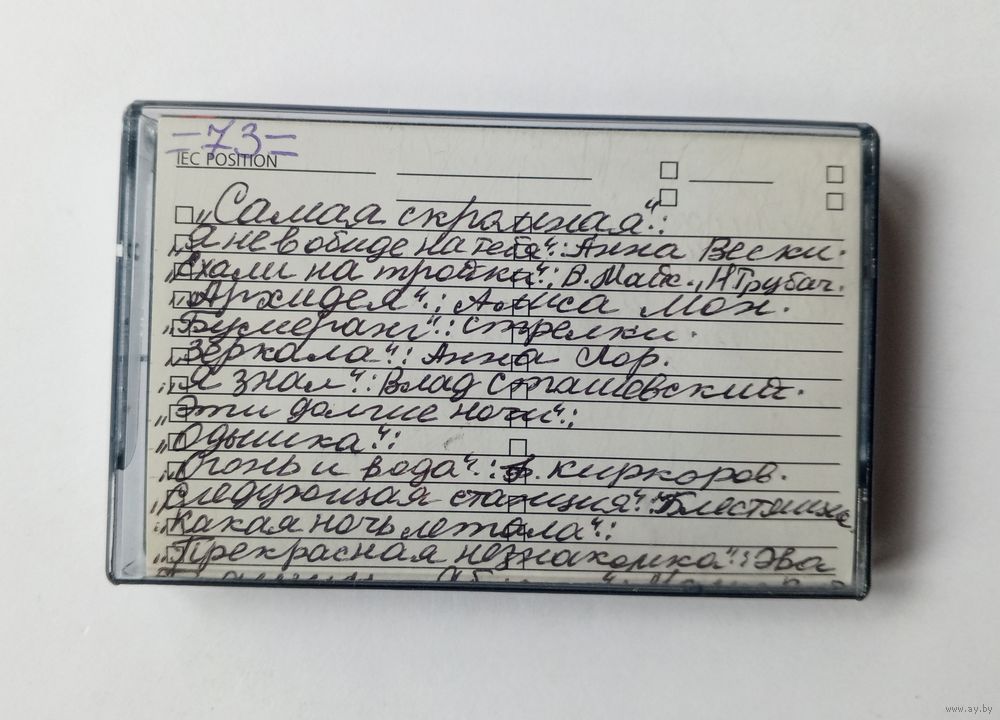 =73=
IEC POSITION
„Самая скромная“:
„Я не в обиде на тебя“: Анна Вески.
„Ехали на тройке“: В. Майк., Н Трубач.
„Архидея“: Алиса Мон.
„Бумеранг“: Стрелки.
„Зеркала“: Анна Лор.
„Я знал“: Влад Сташевский.
„Эти долгие ночи“:
„Одышка“:
„Огонь и вода“: Ф. Киркоров.
„Следующая станция“: Блестящие
„Какая ночь летала“:
„Прекрасная незнакомка“: Эва
www.ay.by